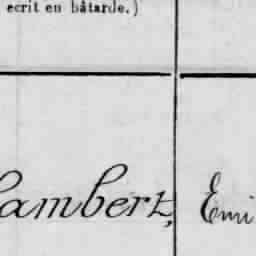 ecrit en bâtarde.)
Lambert, Emi